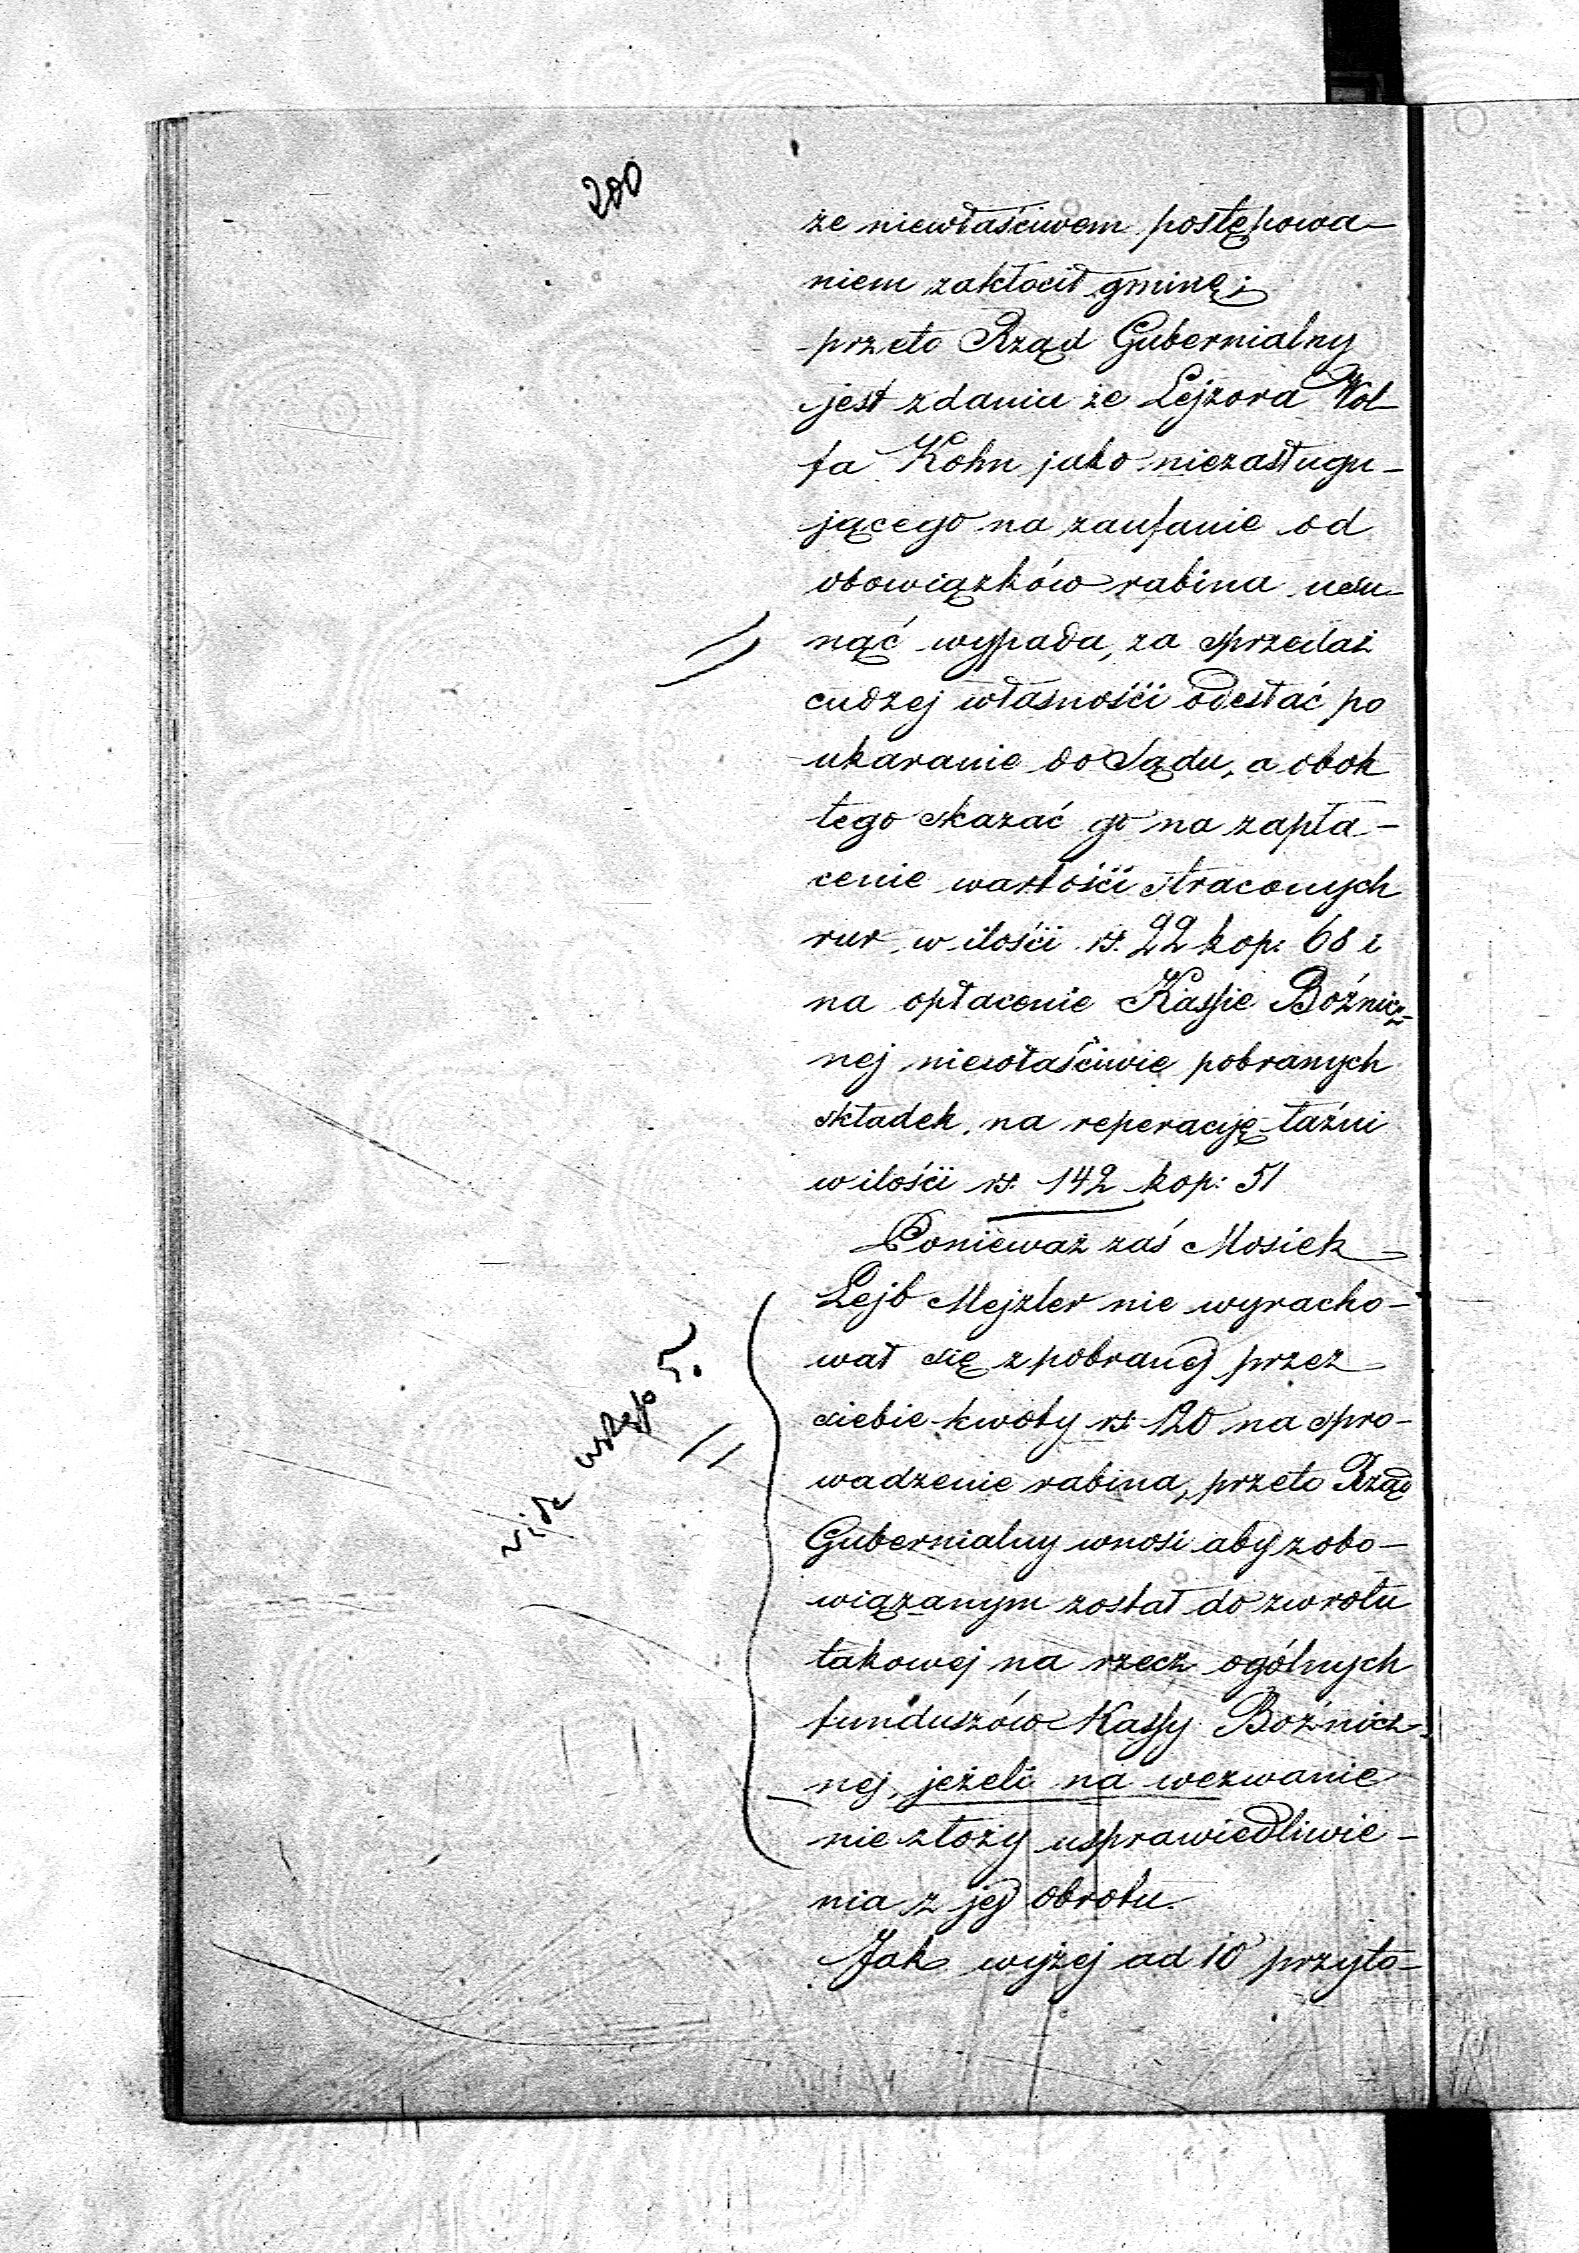 200
że niewłaściwem postępowa-
niem zakłócił gminę;
przeto Rząd Gubernialny
jest zdania że Lejzora Wol-
fa Kohn jako niezasługu-
jącego na zaufanie od
obowiązków rabina usu-
nąć wypada, za sprzedaż
cudzej własnośći odesłać po
ukaranie do Sądu, a obok
tego skazać go na zapła-
cenie wartośći straconych
rur w ilośći rs. 22 kop: 68 i
na opłacenie Kassie Bożnicz-
nej niewłaściwie pobranych
składek, na reperacyję łaźni
w ilośći rs. 142 kop: 51
Ponieważ zaś Mosiek
Lejb Mejzler nie wyracho-
wał się z pobranej przez
siebie kwoty rs. 120 na spro-
wadzenie rabina, przeto Rząd
Gubernialny wnosi aby zobo-
wiązanym został do zwrotu
takowej na rzecz ogólnych
funduszów Kassy Bożnicz-
nej, jeżeli na wezwanie
nie złoży usprawiedliwie-
nia z jej obrotu.
Jak wyżej ad 10 przyto-
vide ustęp 5.